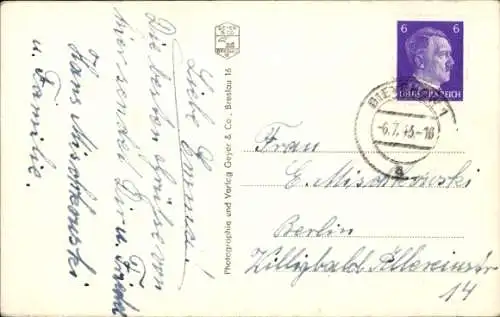 Liebe Emmi!
Die besten Grüße von
hier sendet Dir u. Frieda
Hans Mischkowski
u. Familie.
Photographie und Verlag Geyer & Co., Breslau 16
6 6
DEUTSCHES REICH
-6.7.43-18
a
Frau
E. Mischkowski
Berlin
14